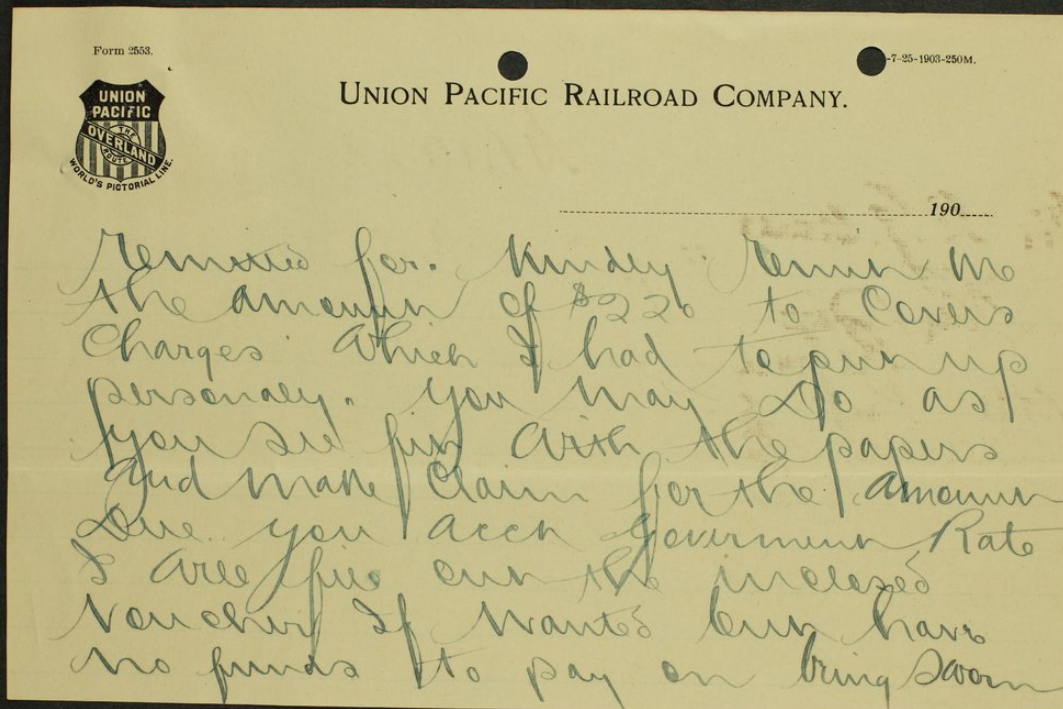 Form 2553.
-7-25-1903-250M.
UNION PACIFIC RAILROAD COMPANY.
UNION
PACIFIC
THE
OVERLAND
ROUTE
WORLD'S PICTORIAL LINE.
190
remitted for. Kindly remit me
the amount of $2 to covers
charges which I had to put up
personaly. you may do as
you see fit with the papers
and make claim for the amount
Due you acct government Rate
I will fill out the inclosed
voucher If wanted but have
no funds to pay on being sworn